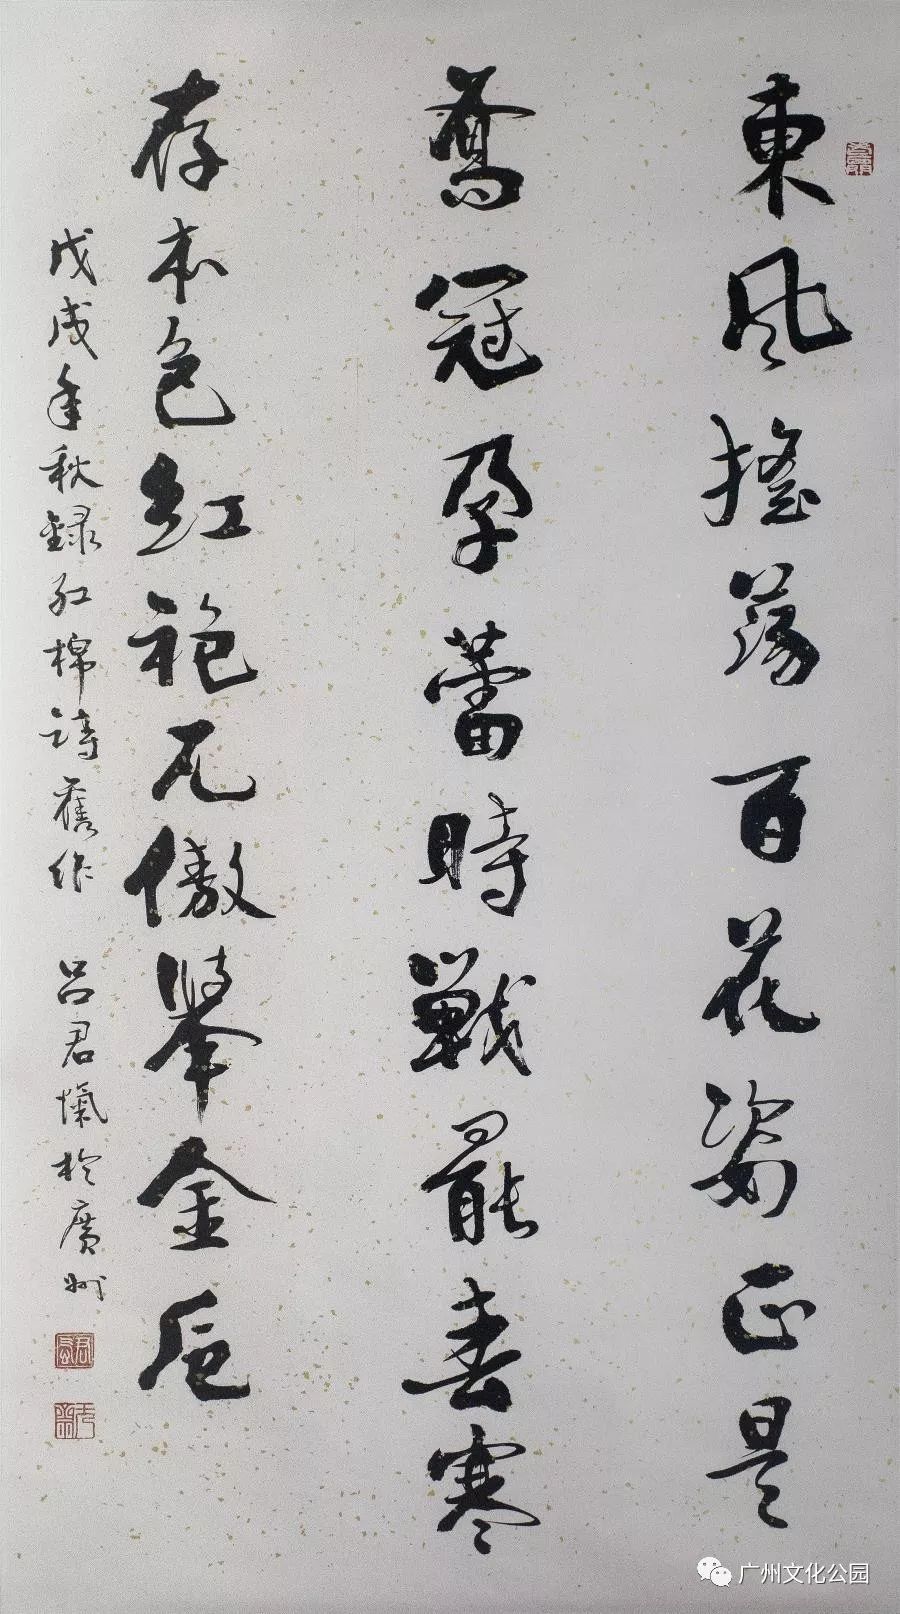 東風搖蕩百花姿正是
喬冠孕蕾時戰罷春寒
存本色紅袍兀傲舉金卮
戊戌年秋録紅棉詩舊作 呂君愾於廣州
广州文化公园